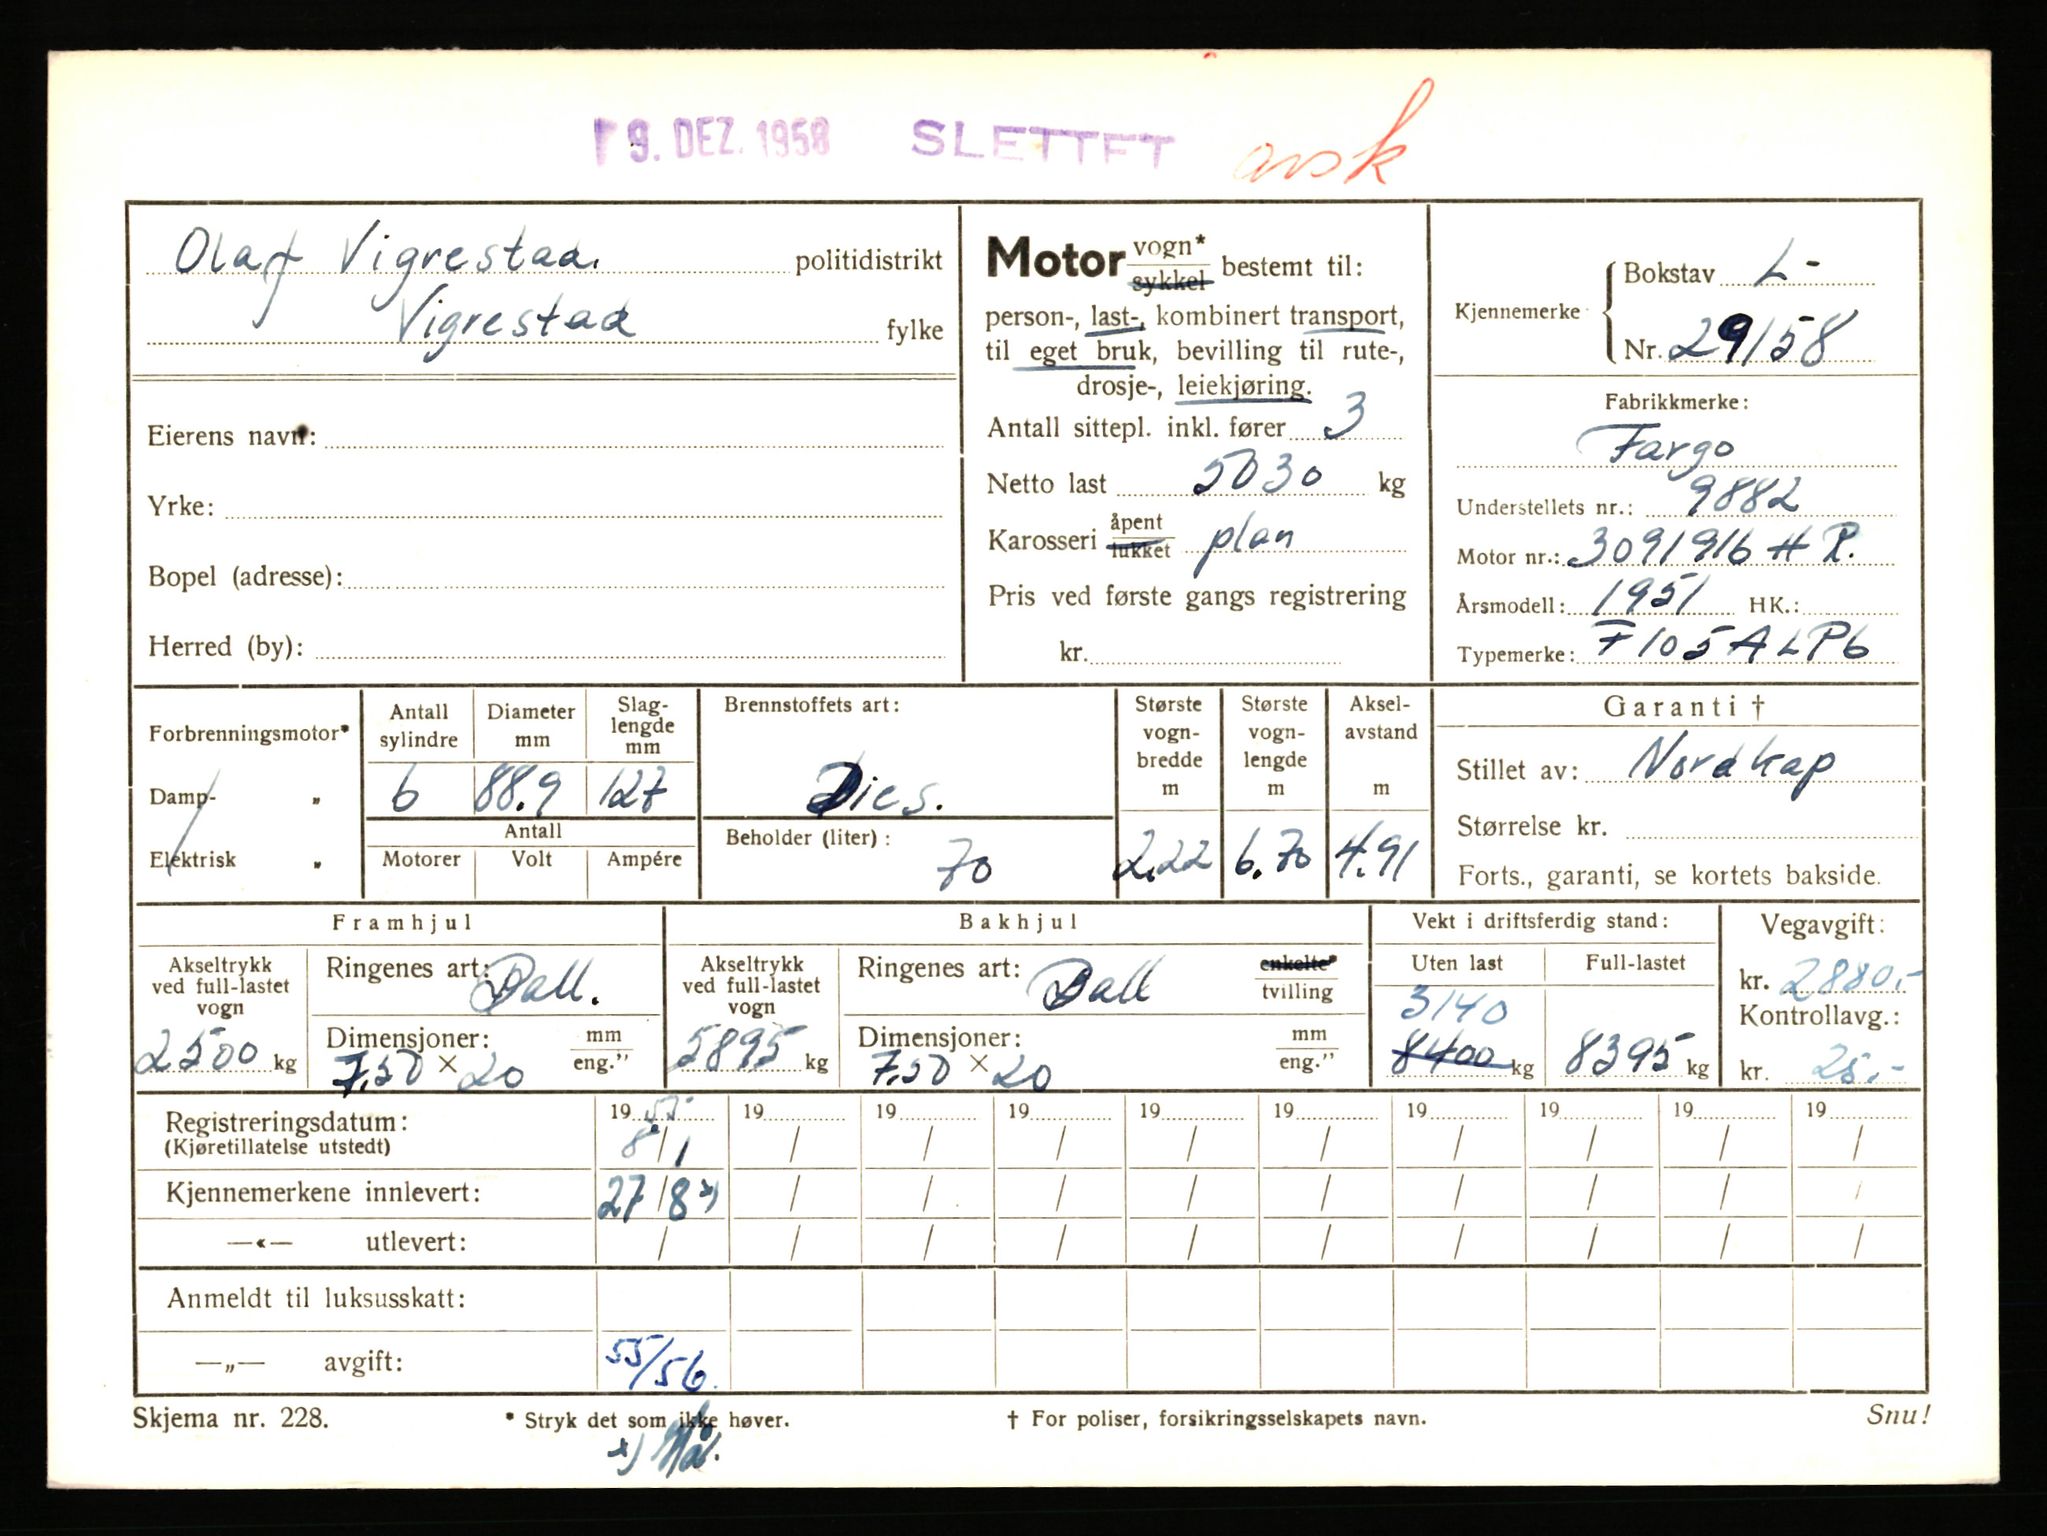 19. DEZ. 1958 SLETTET avsk
Olaf Vigrestad. politidistrikt
Vigrestad fylke
Eierens navn:
Yrke:
Bopel (adresse):
Herred (by):
Motor vogn* sykkel bestemt til:
person-, last-, kombinert transport,
til eget bruk, bevilling til rute-,
drosje-, leiekjøring.
Antall sittepl. inkl. fører 3
Netto last 5030 kg
Karosseri åpent lukket plan
Pris ved første gangs registrering
kr.
Kjennemerke Bokstav L-
Nr. 29158
Fabrikkmerke:
Fargo
Understellets nr.: 9882
Motor nr.: 3091916 H R.
Årsmodell: 1951 HK.:
Typemerke: F105ALP6
Forbrenningsmotor*
Damp- „
Elektrisk „
Antall sylindre Diameter mm Slaglengde mm
6 88.9 127
Antall
Motorer Volt Ampére
Brennstoffets art:
Dies.
Beholder (liter): 70
Største vognbredde m Største vognlengde m Akselavstand m
2.22 6.70 4.91
Garanti †
Stillet av: Nordkap
Størrelse kr.
Forts., garanti, se kortets bakside.
Framhjul
Akseltrykk ved full-lastet vogn
2500 kg
Ringenes art: Ball.
Dimensjoner: mm eng."
7.50 × 20
Bakhjul
Akseltrykk ved full-lastet vogn
5895 kg
Ringenes art: Ball enkelte* tvilling
Dimensjoner: mm eng."
7.50 × 20
Vekt i driftsferdig stand:
Uten last Full-lastet
3140
8400 kg 8395 kg
Vegavgift:
kr. 2880.-
Kontrollavg.:
kr. 25.-
Registreringsdatum: 19 55 19 19 19 19 19 19 19 19 19
(Kjøretillatelse utstedt) 8/1 / / / / / / / / /
Kjennemerkene innlevert: 27/8 x) / / / / / / / / /
—«— utlevert: / / / / / / / / / /
Anmeldt til luksusskatt:
—„— avgift: 55/56.
Skjema nr. 228. * Stryk det som ikke høver. † For poliser, forsikringsselskapets navn. Snu!
x)